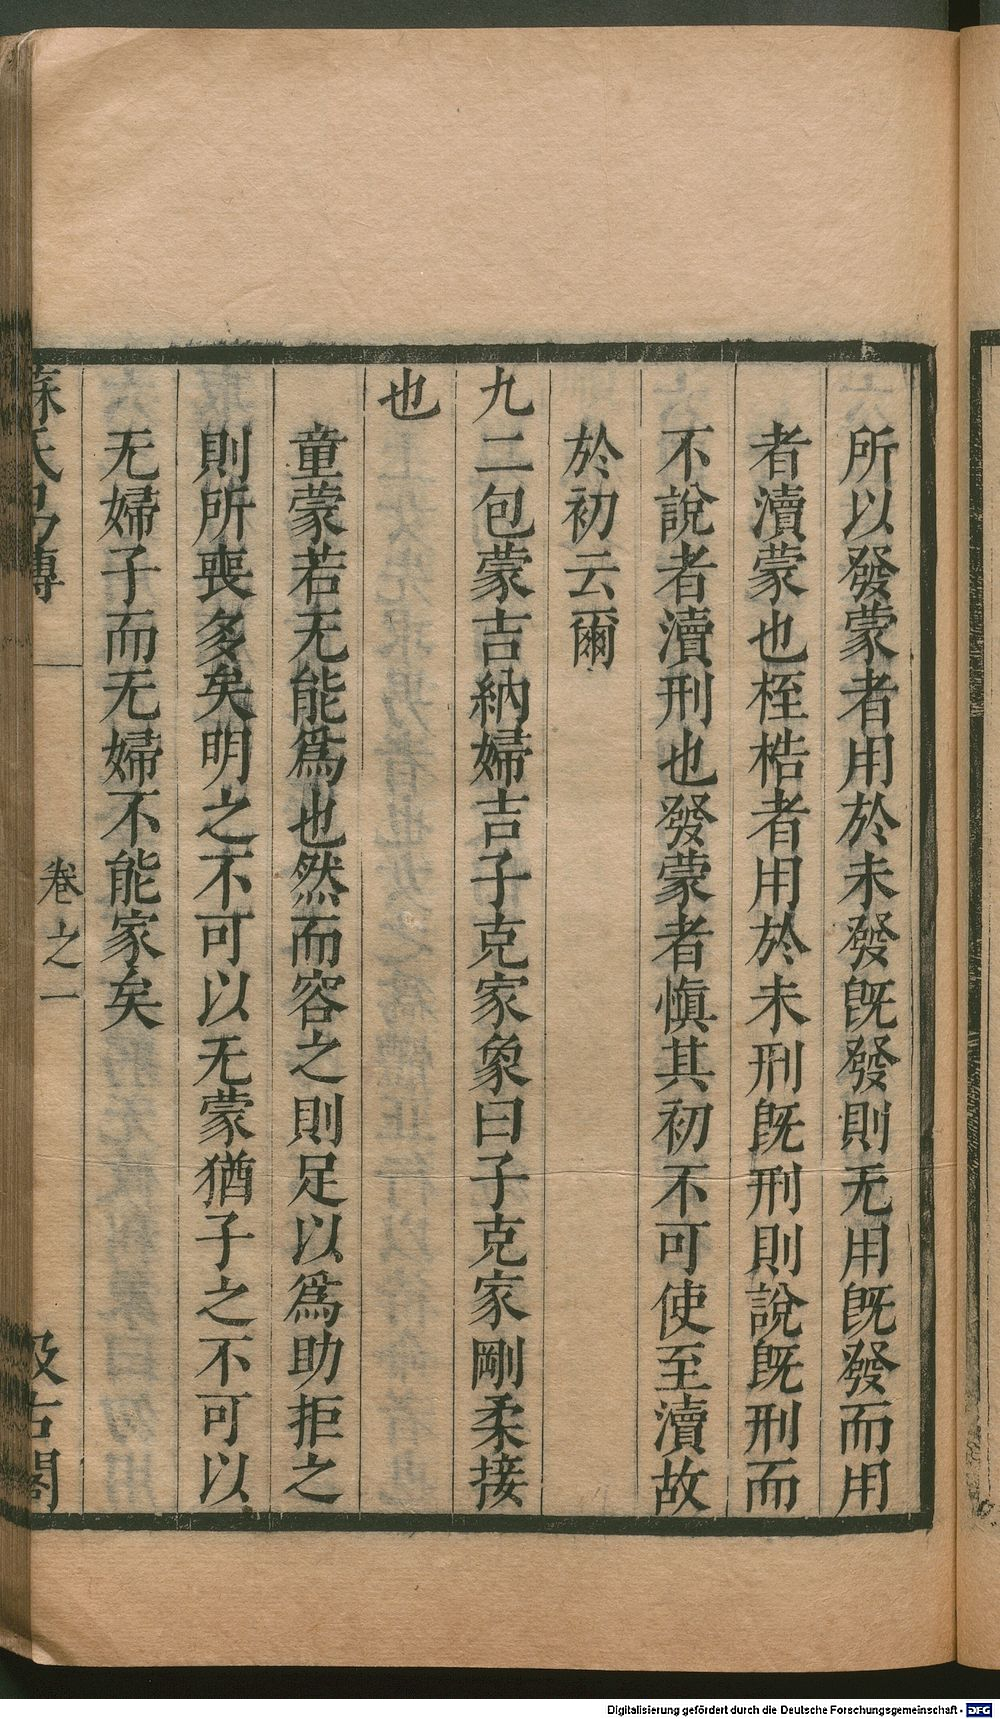 所以發蒙者用於未發旣發則无用旣發而用
者瀆蒙也桎梏者用於未刑旣刑則說旣刑而
不說者瀆刑也發蒙者愼其初不可使至瀆故
於初云爾
九二包蒙吉納婦吉子克家象曰子克家剛柔接
也
童蒙若无能爲也然而容之則足以爲助拒之
則所喪多矣明之不可以无蒙猶子之不可以
无婦子而无婦不能家矣
蘇氏易傳 卷之一 汲古閣
Digitalisierung gefördert durch die Deutsche Forschungsgemeinschaft - DFG